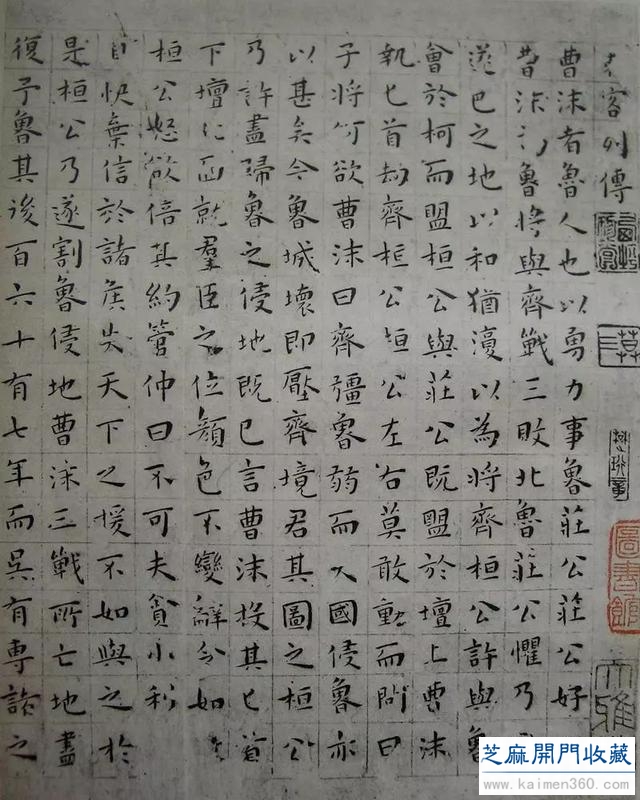 客列傳
曹沫者魯人也以勇力事魯莊公莊公好
沫為魯將與齊戰三敗北魯莊公懼乃
遂邑之地以和猶復以為將齊桓公許與魯
會於柯而盟桓公與莊公既盟於壇上曹沫
執匕首劫齊桓公桓公左右莫敢動而問曰
子將何欲曹沫曰齊彊魯弱而大國侵魯亦
以甚矣今魯城壞即壓齊境君其圖之桓公
乃許盡歸魯之侵地既已言曹沫投其匕首
下壇北面就羣臣之位顏色不變辭令如
桓公怒欲倍其約管仲曰不可夫貪小利
自快棄信於諸侯失天下之援不如與之於
是桓公乃遂割魯侵地曹沫三戰所亡地盡
復予魯其後百六十有七年而吳有專諸之
圖書館
大雅
芝麻開門收藏
www.kaimen360.com